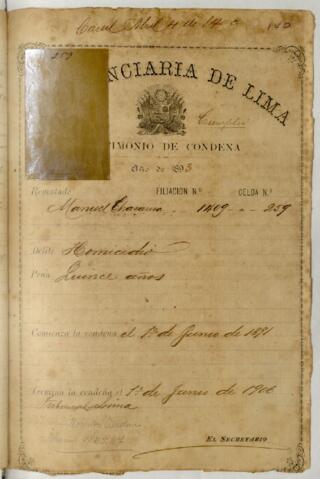 Abril 4 de
259
NCIARIA DE LIMA
Cumplió
TIMONIO DE CONDENA
Año de 1893
Rematado FILIACION N.º CELDA N.º
Manuel 1409 259
Delito Homicidio
Pena Quince años
Comienza la condena el 1º de Junio de 1891
Termina la condena el 1º de Junio de 1906
Tribunal Lima
EL SECRETARIO